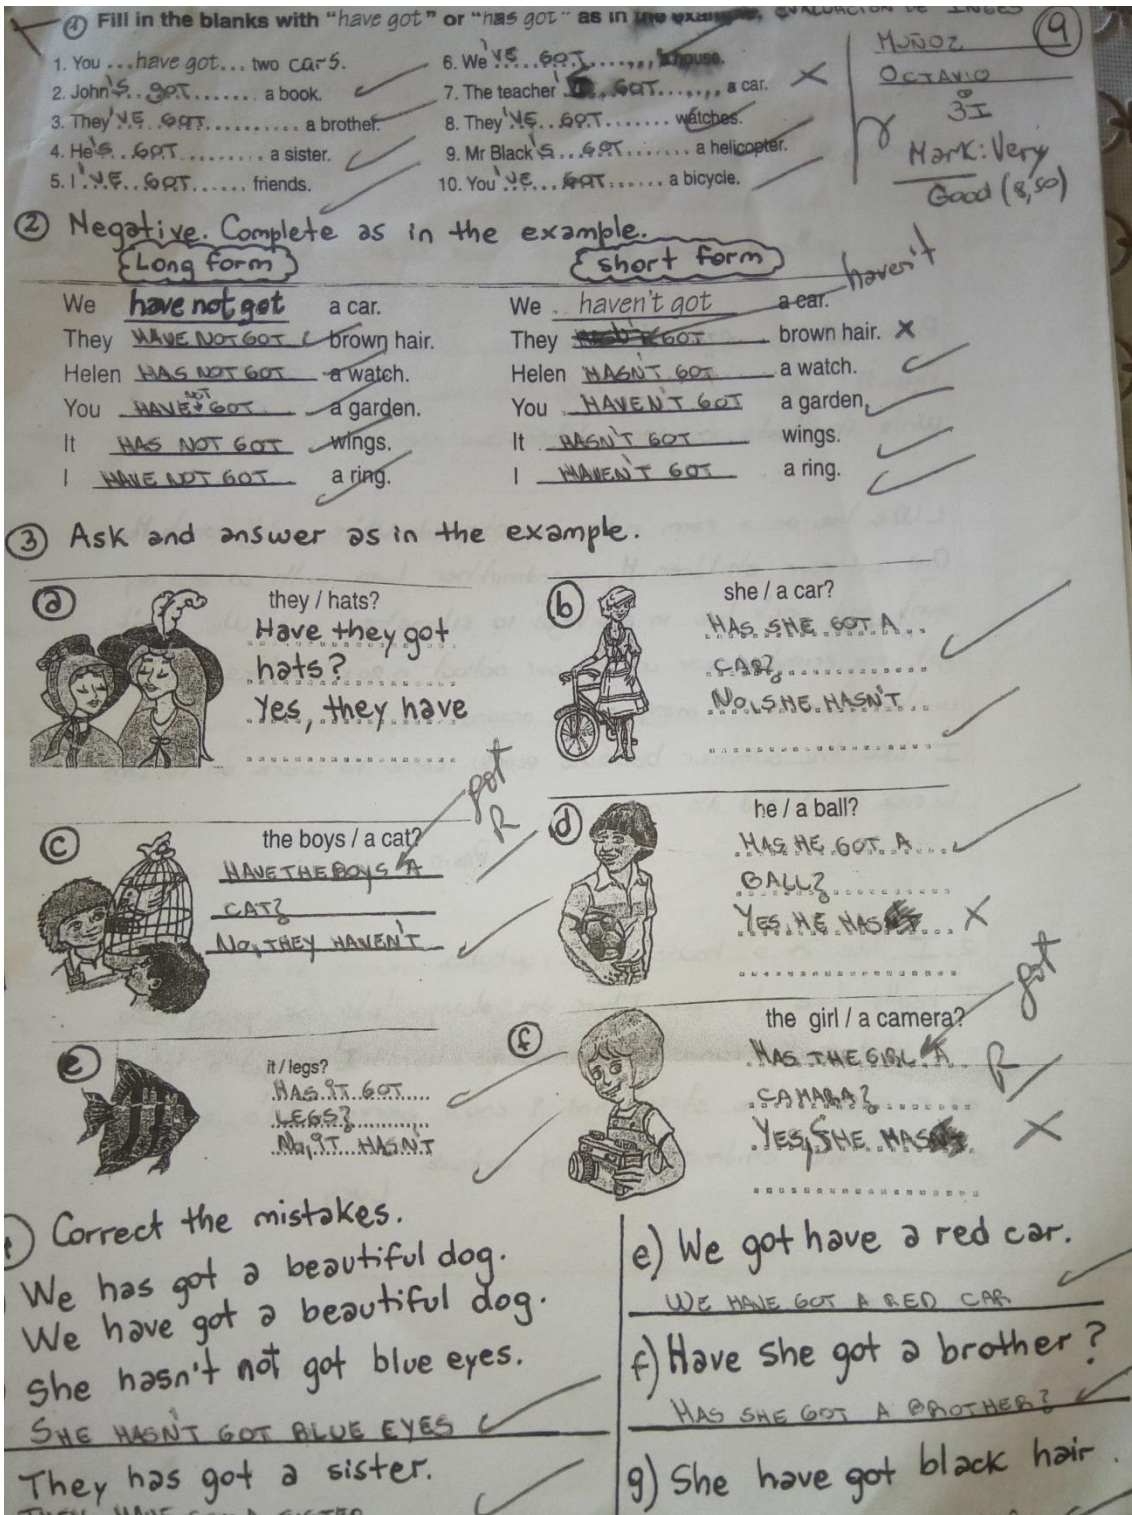 ① Fill in the blanks with "have got" or "has got" as in the example. EVALUACIÓN DE INGES
MUÑOZ
OCTAVIO
3I
9
Mark: Very
Good (8,50)
1. You ...have got... two cars.
2. John'S..GOT....... a book.
3. They'VE GOT.......... a brother.
4. He'S...GOT.......... a sister.
5. I'VE...GOT...... friends.
6. We'VE GOT........ a house.
7. The teacher' GOT...... a car.
8. They'VE..GOT....... watches.
9. Mr Black'S...GOT....... a helicopter.
10. You'VE...GOT...... a bicycle.
② Negative. Complete as in the example.
Long form
We have not got a car.
They HAVE NOT GOT brown hair.
Helen HAS NOT GOT a watch.
You HAVE NOT GOT a garden.
It HAS NOT GOT wings.
I HAVE NOT GOT a ring.
short form
We haven't got a car.
haven't
They GOT brown hair. x
Helen HASN'T GOT a watch.
You HAVEN'T GOT a garden.
It HASN'T GOT wings.
I HAVEN'T GOT a ring.
③ Ask and answer as in the example.
ⓐ they / hats?
Have they got
hats?
Yes, they have
ⓑ she / a car?
HAS SHE GOT A
CAR?
NO, SHE HASN'T
ⓒ the boys / a cat?
got
R
HAVE THE BOYS A
CAT?
NO, THEY HAVEN'T
ⓓ he / a ball?
HAS HE GOT A
BALL?
YES, HE HAS
X
ⓔ it / legs?
HAS IT GOT
LEGS?
NO, IT HASN'T
ⓕ the girl / a camera?
got
HAS THE GIRL A
R
CAMARA?
YES, SHE HAS
X
Correct the mistakes.
We has got a beautiful dog.
We have got a beautiful dog.
She hasn't not got blue eyes.
SHE HASN'T GOT BLUE EYES
They has got a sister.
THEY HAVE GOT A SISTER
e) We got have a red car.
WE HAVE GOT A RED CAR
f) Have she got a brother?
HAS SHE GOT A BROTHER?
g) She have got black hair.